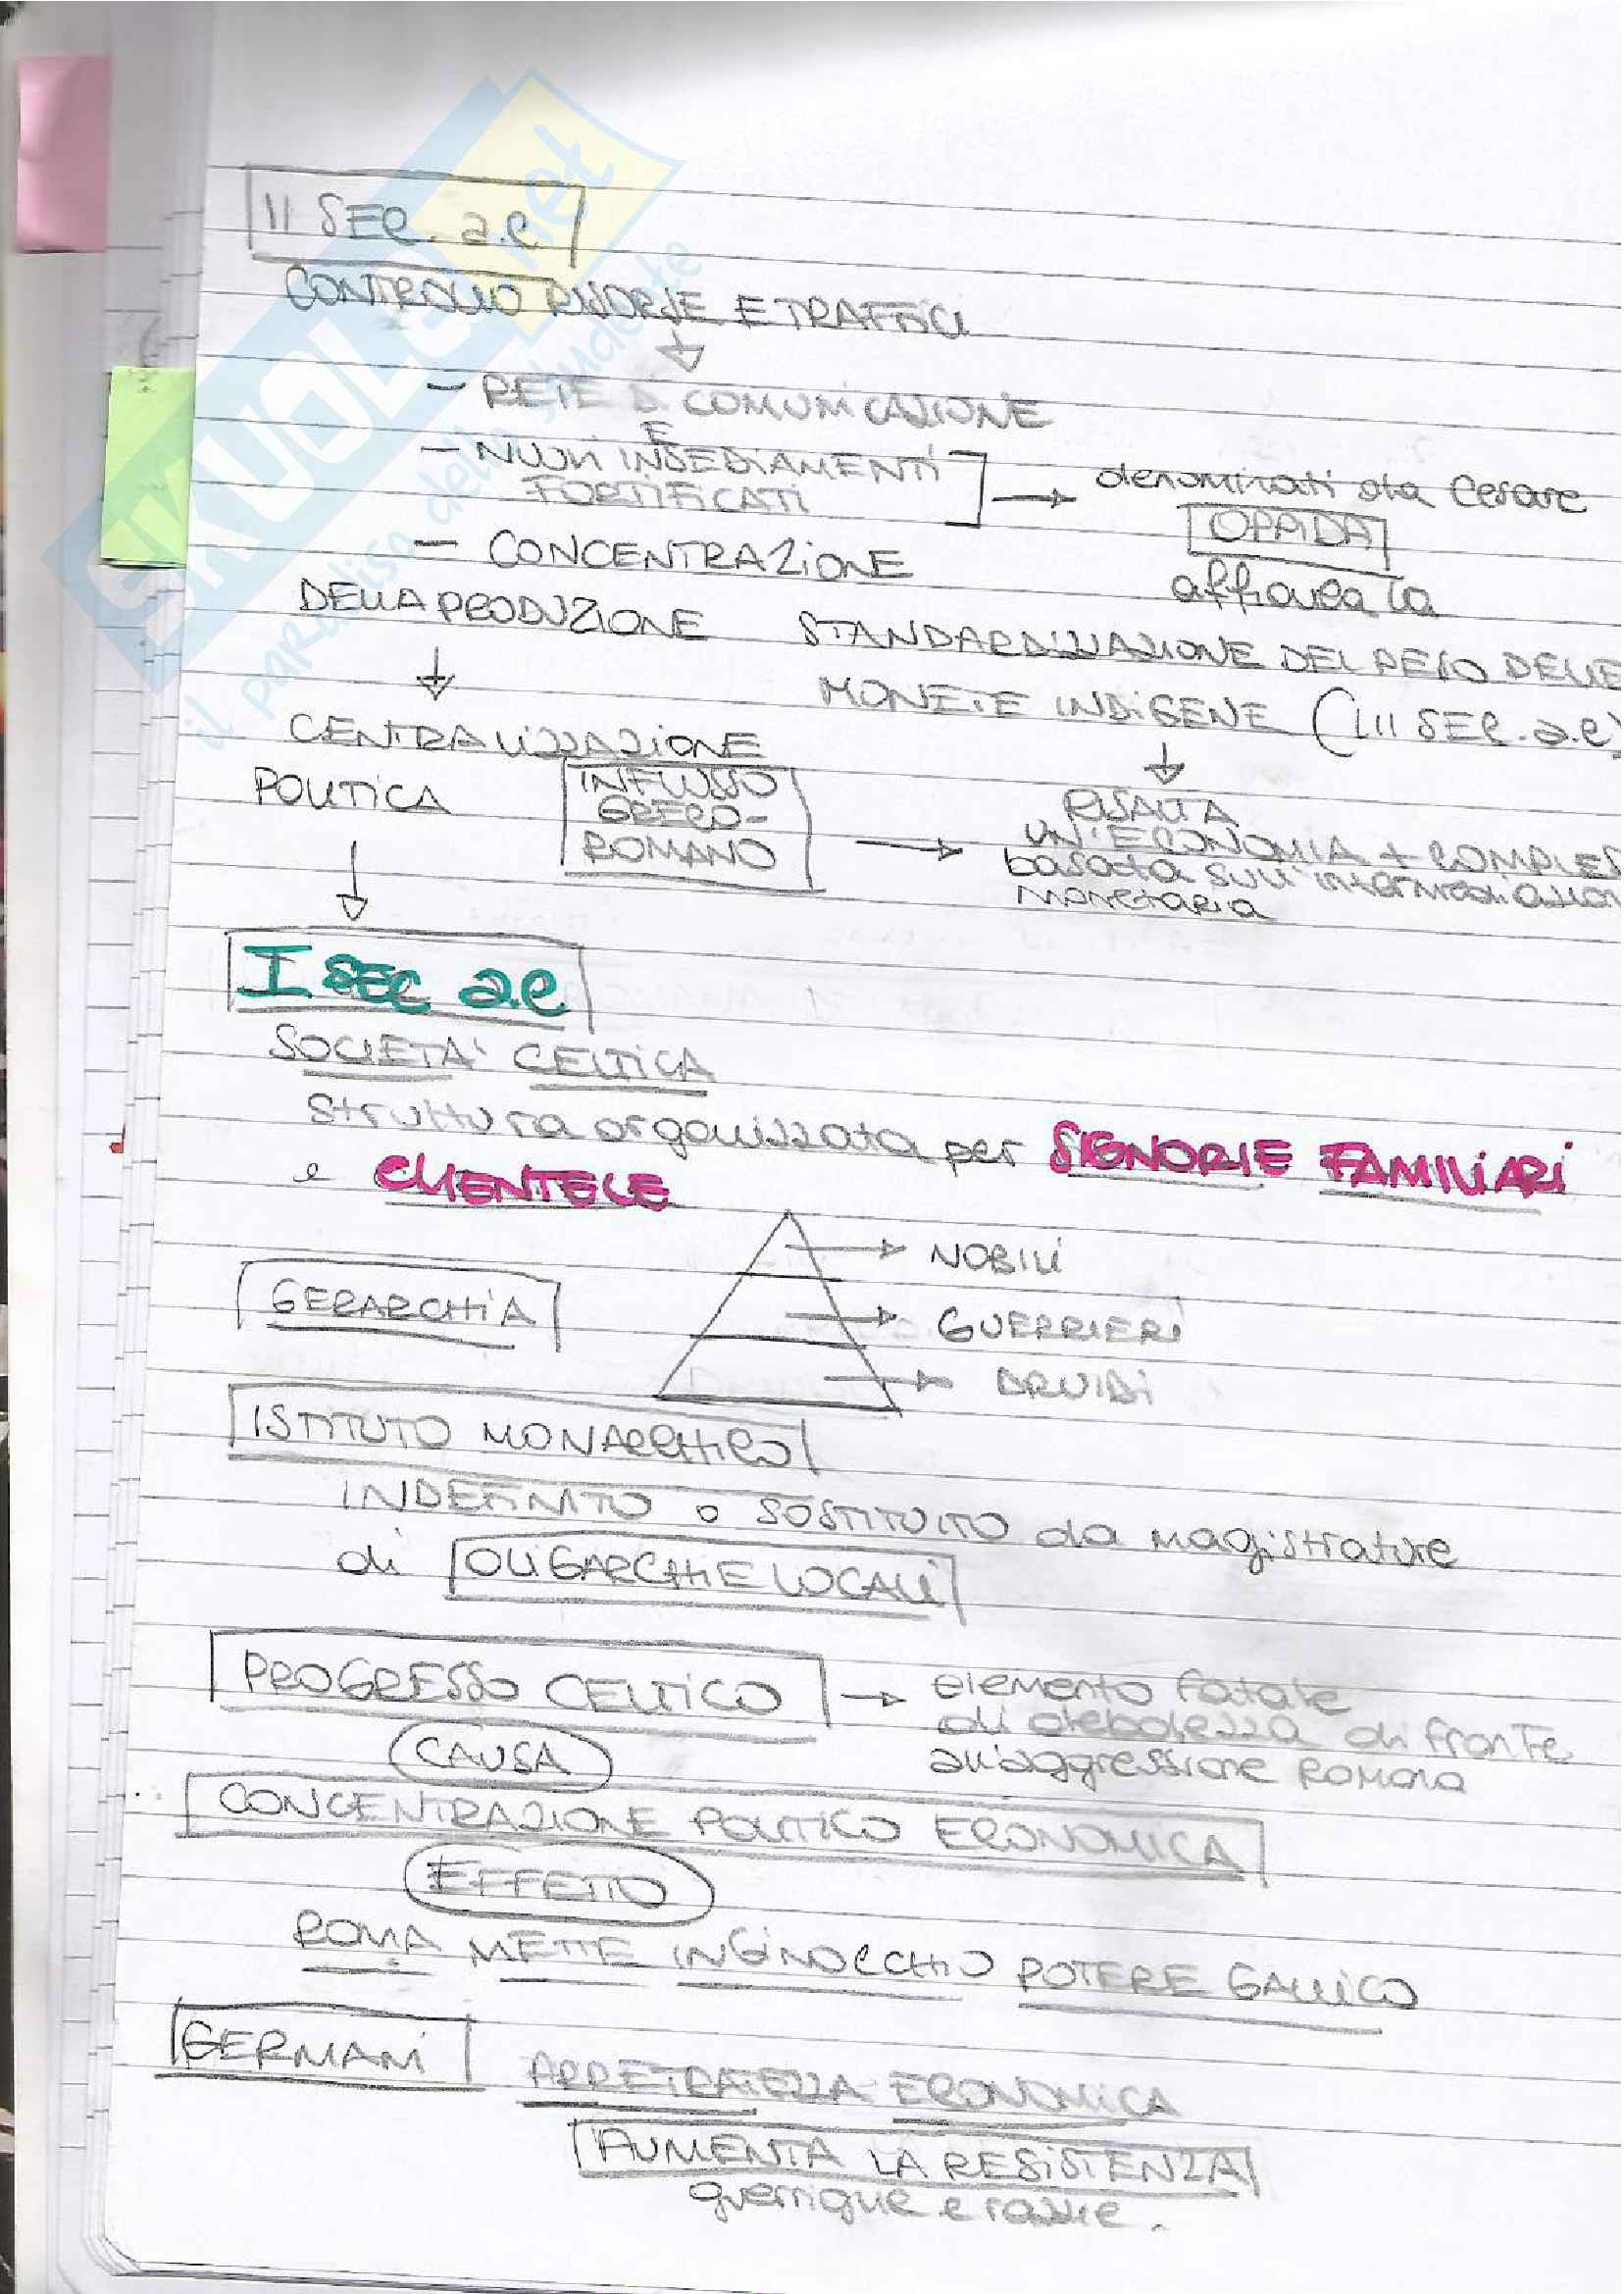 II SEC. a.C
CONTROLLO RISORSE E TRAFFICI
- RETE DI COMUNICAZIONE
E
- NUOVI INSEDIAMENTI
FORTIFICATI
denominati da Cesare
OPPIDA
- CONCENTRAZIONE
DELLA PRODUZIONE
affianca la
STANDARDIZZAZIONE DEL PESO DELLE
MONETE INDIGENE (III SEC. a.C)
CENTRALIZZAZIONE
POLITICA
INFLUSSO
GRECO-
ROMANO
RISALTA
UN'ECONOMIA + COMPLES
basata sull'intermediazion
monetaria
I SEC a.C
SOCIETA' CELTICA
struttura organizzata per SIGNORIE FAMILIARI
e CLIENTELE
GERARCHIA
NOBILI
GUERRIERI
DRUIDI
ISTITUTO MONARCHICO
INDEFINITO o SOSTITUITO da magistrature
di OLIGARCHIE LOCALI
PROGRESSO CELTICO
elemento fatale
di debolezza di fronte
all'aggressione romana
CAUSA
CONCENTRAZIONE POLITICO ECONOMICA
EFFETTO
ROMA METTE INGINOCCHIO POTERE GALLICO
GERMANI
ARRETRATEZZA ECONOMICA
AUMENTA LA RESISTENZA
guerrigue e razzie.
SKUOLA.net
il paradiso dello studente